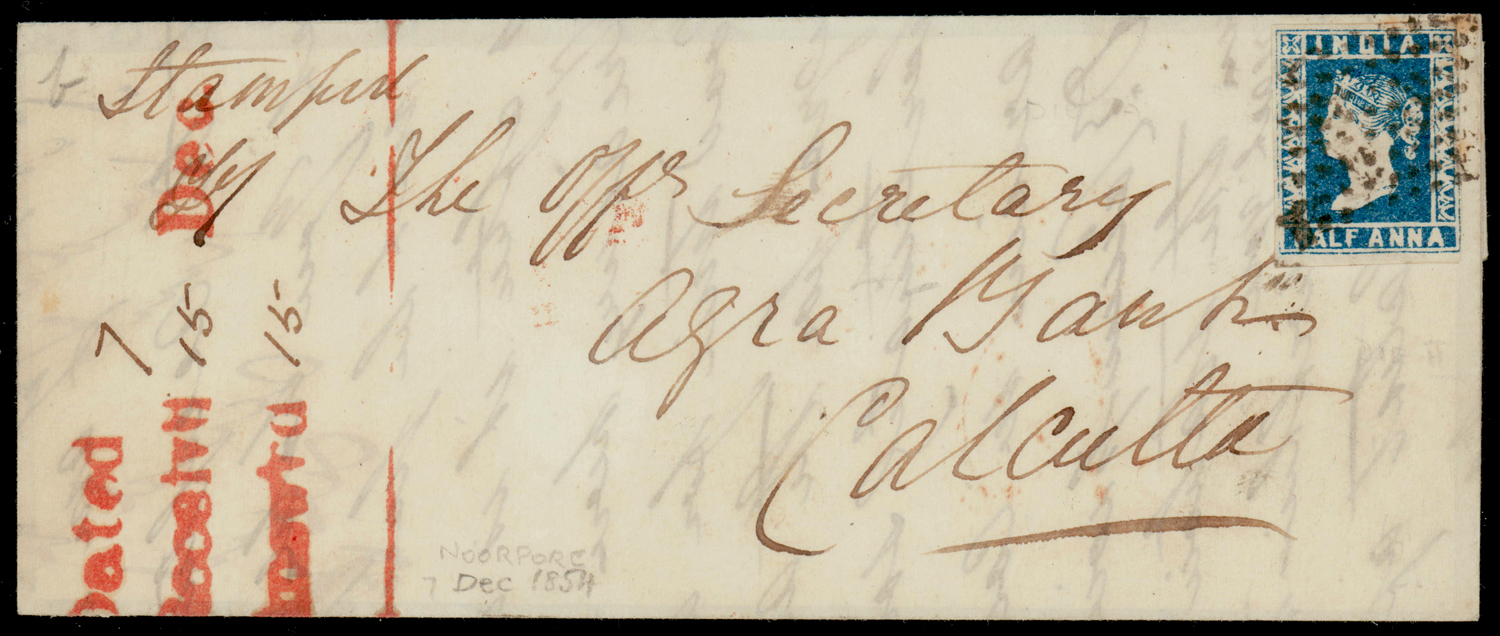 Stamped
The Offr Secretary
Agra Bank
Calcutta
INDIA
HALF ANNA
Dated 7
Receivd 15 Dec
Answrd 15
NOORPORE
7 Dec 1854